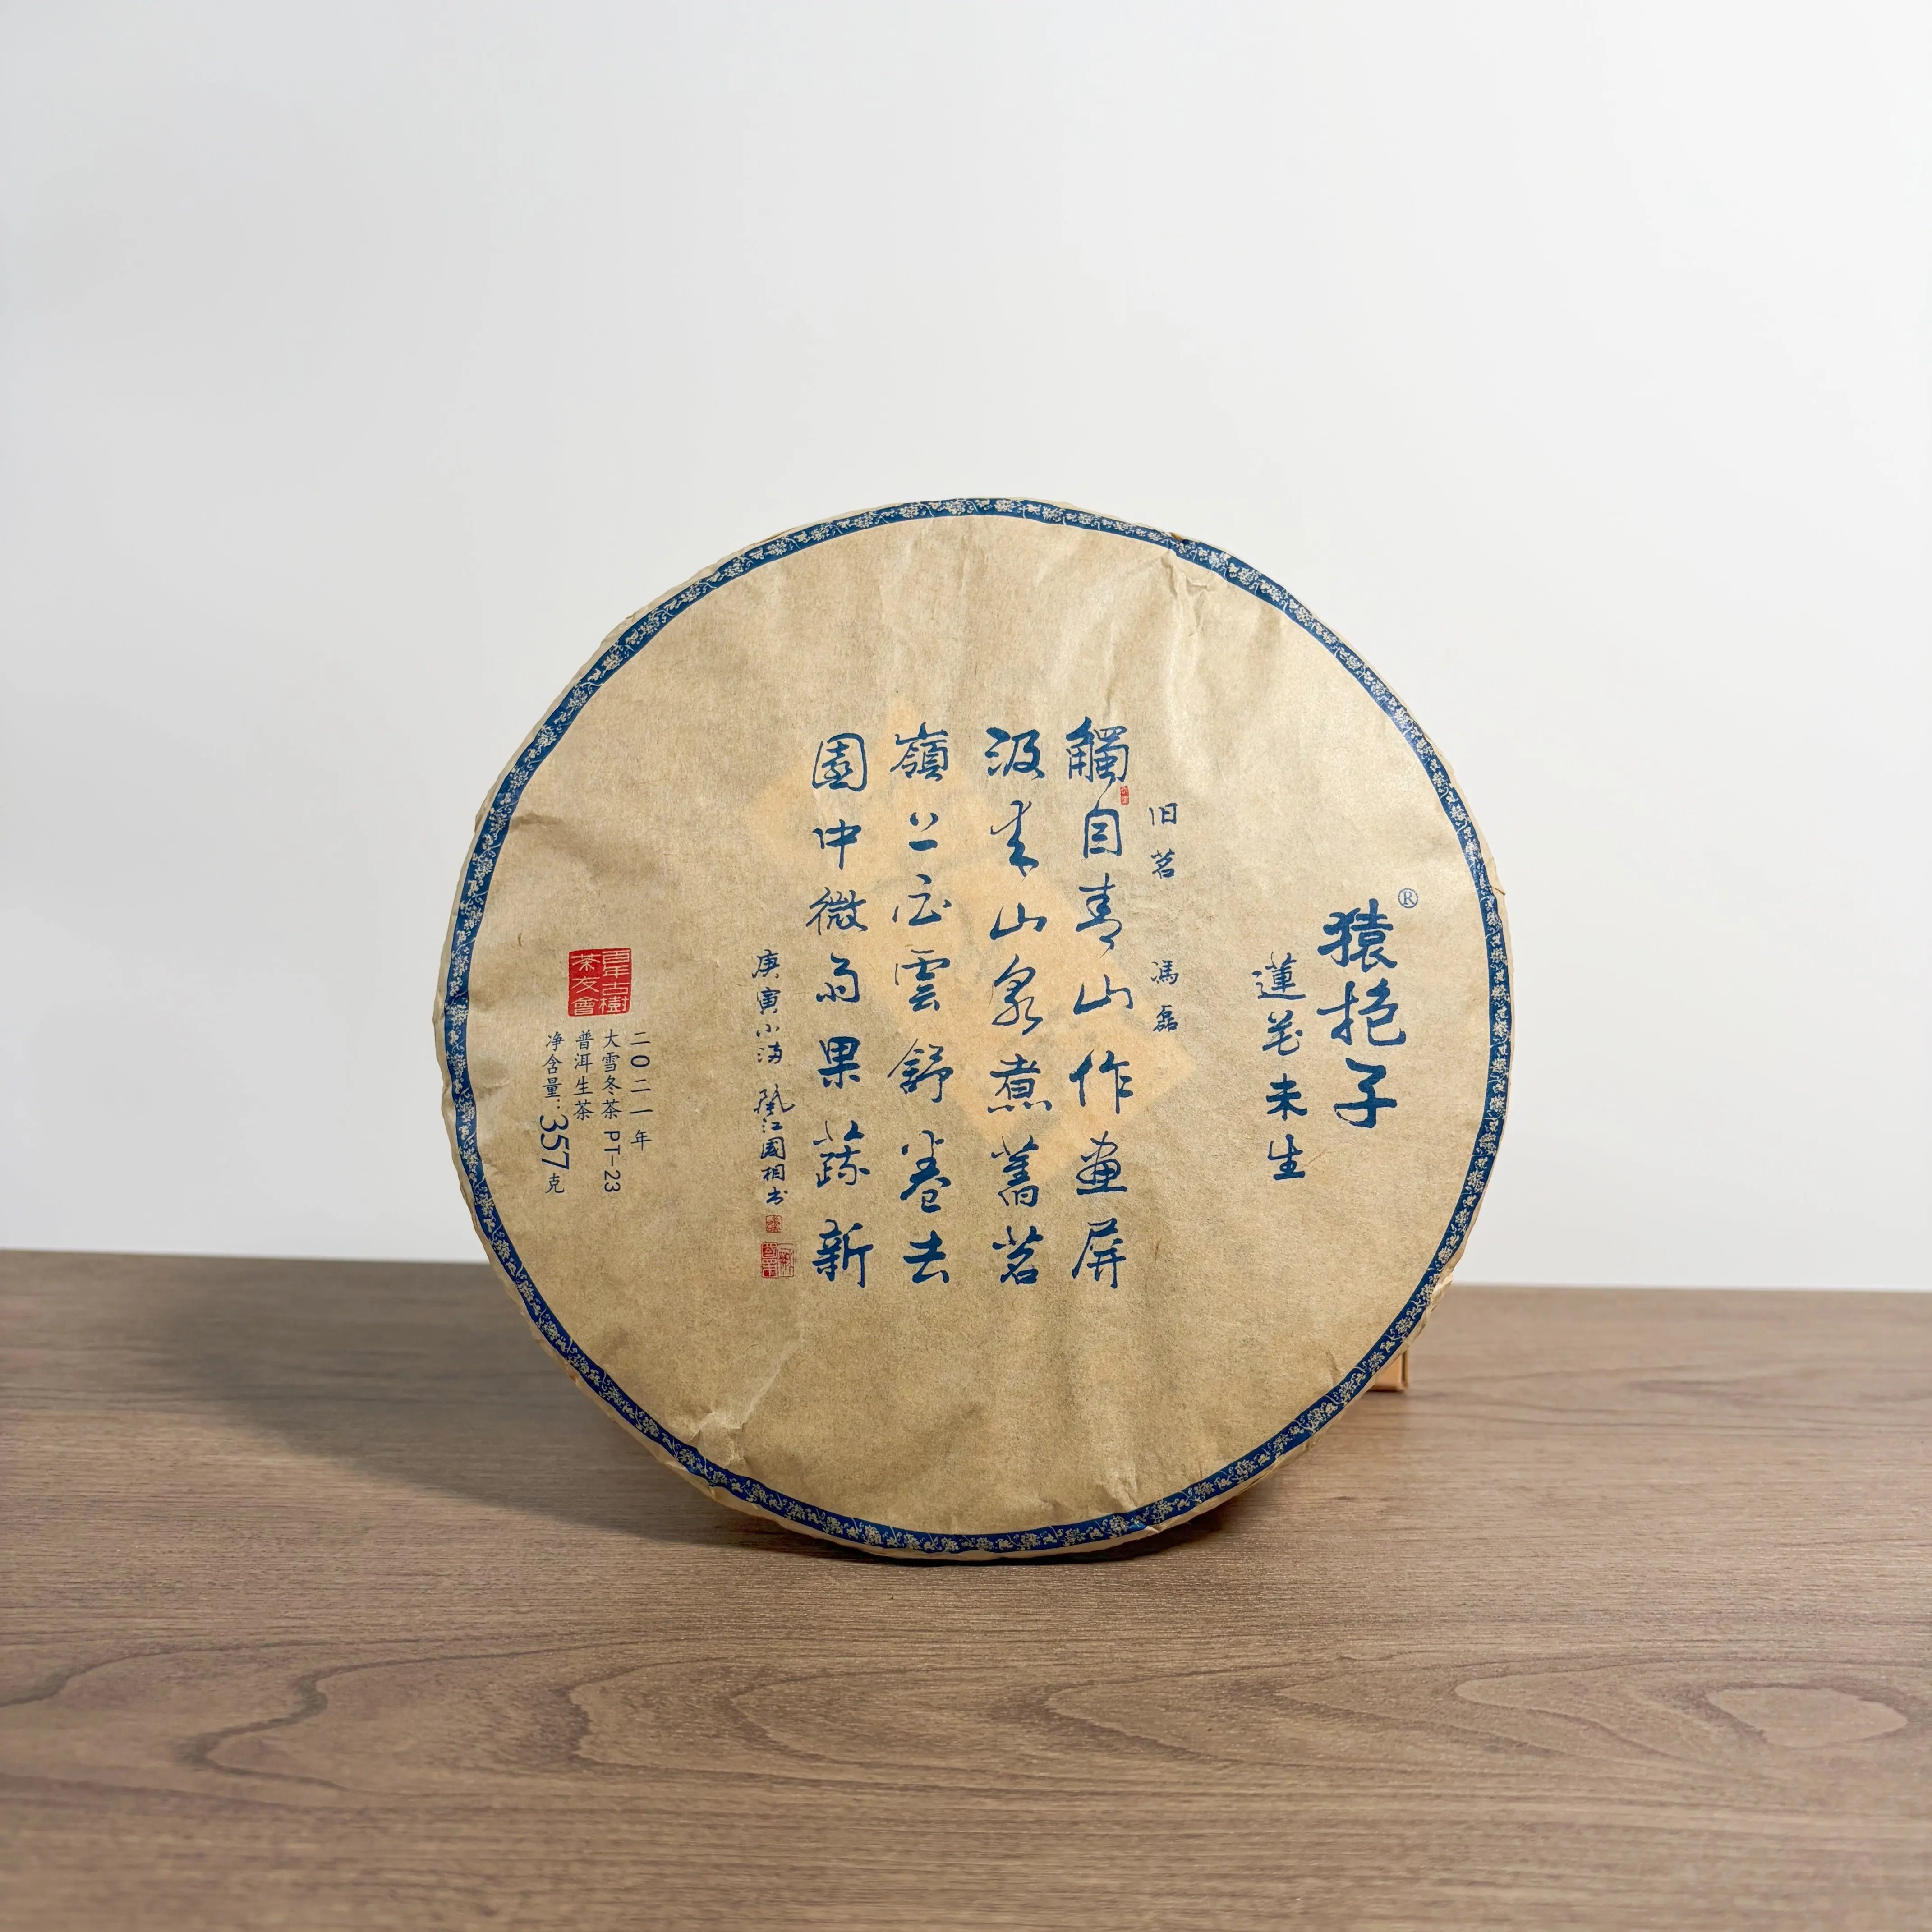 猿挹子®
蓮花未生
旧茗 馮磊
觸目青山作畫屏
汲来山泉煮舊茗
嶺上白雲舒卷去
園中微雨果蔬新
庚寅小满 江國相书
百年古樹
茶友會
二〇二一年
大雪冬茶 PT-23
普洱生茶
净含量:357克